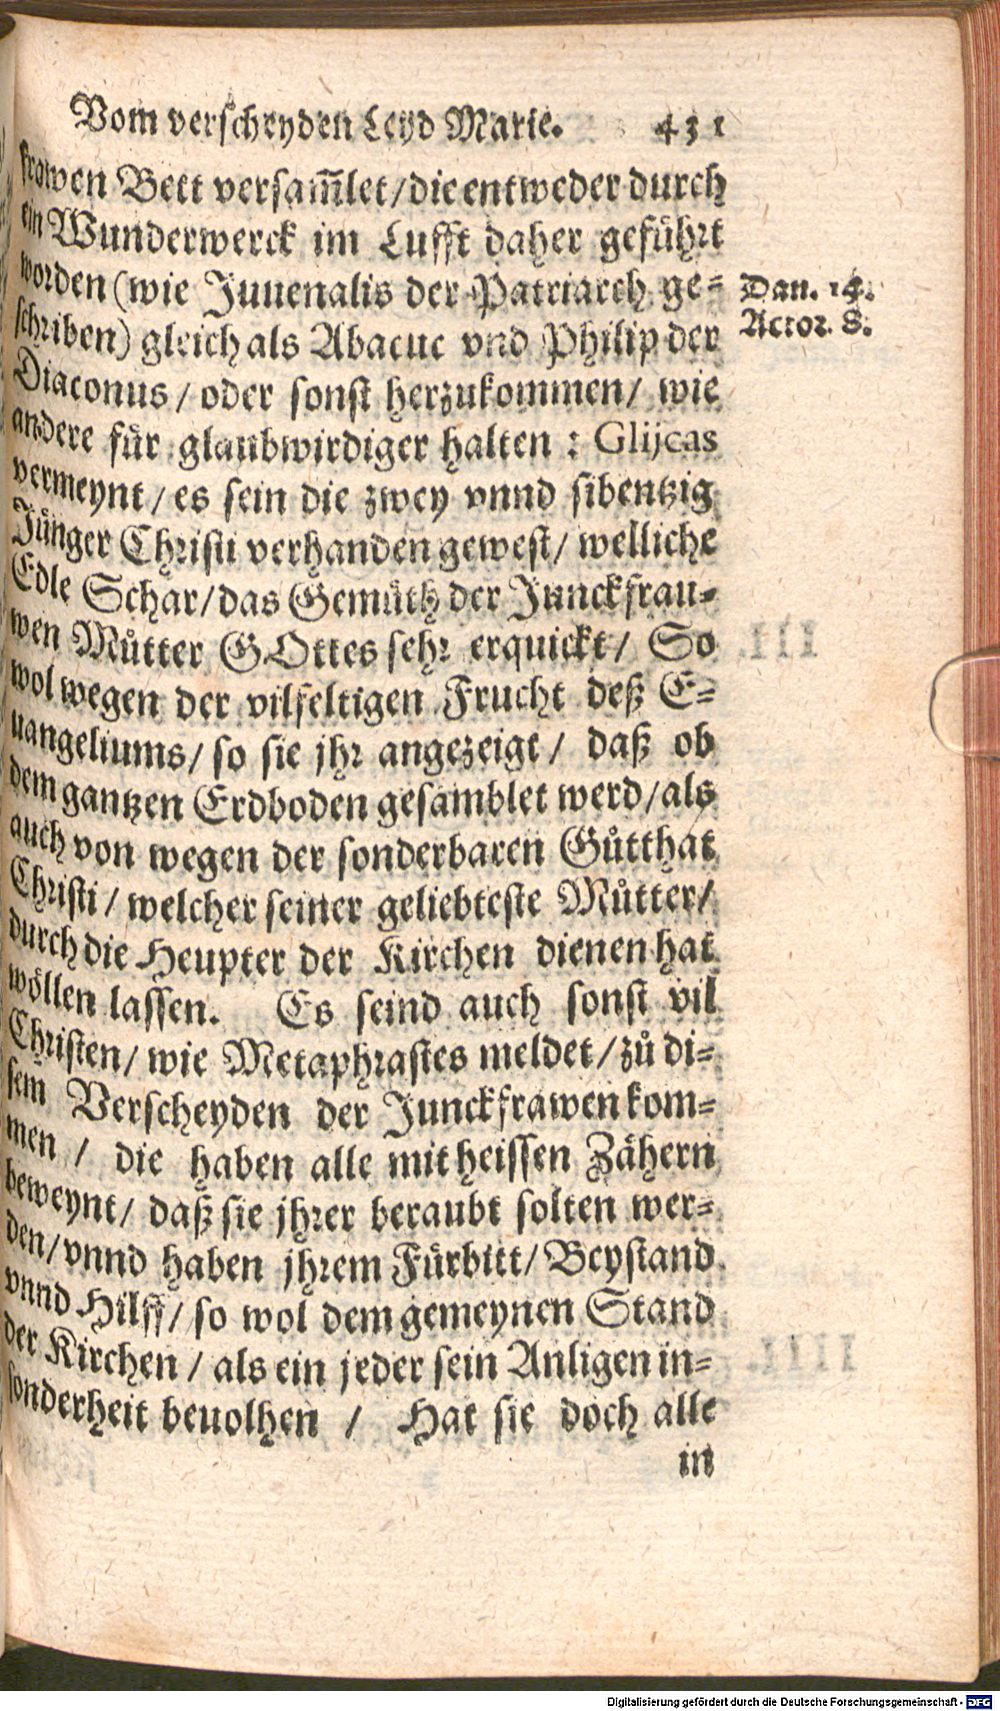 Vom verscheyden Leyd Marie. 431
frawen Bett versam̃let/die entweder durch
ein Wunderwerck im Lufft daher geführt
worden (wie Juuenalis der Patriarch ge-
schriben) gleich als Abacuc vnd Philip der
Diaconus/ oder sonst herzukommen/ wie
andere für glaubwirdiger halten : Glijcas
vermeynt/ es sein die zwey vnnd sibentzig
Jünger Christi verhanden gewest/ welliche
Edle Schar/das Gemüth der Junckfrau-
wen Můtter GOttes sehr erquickt/ So
wol wegen der vilfeltigen Frucht deß E-
uangeliums/ so sie jhr angezeigt/ daß ob
dem gantzen Erdboden gesamblet werd/als
auch von wegen der sonderbaren Gůtthat
Christi/ welcher seiner geliebteste Můtter/
durch die Heupter der Kirchen dienen hat
wöllen lassen. Es seind auch sonst vil
Christen/ wie Metaphrastes meldet/zů di-
sem Verscheyden der Junckfrawen kom-
men / die haben alle mit heissen Zähern
beweynt/ daß sie jhrer beraubt solten wer-
den/vnnd haben jhrem Fürbitt/ Beystand
vnnd Hilff/ so wol dem gemeynen Stand
der Kirchen/ als ein jeder sein Anligen in-
sonderheit beuolhen / Hat sie doch alle
in
Dan. 14.
Actor. 8.
Digitalisierung gefördert durch die Deutsche Forschungsgemeinschaft - DFG